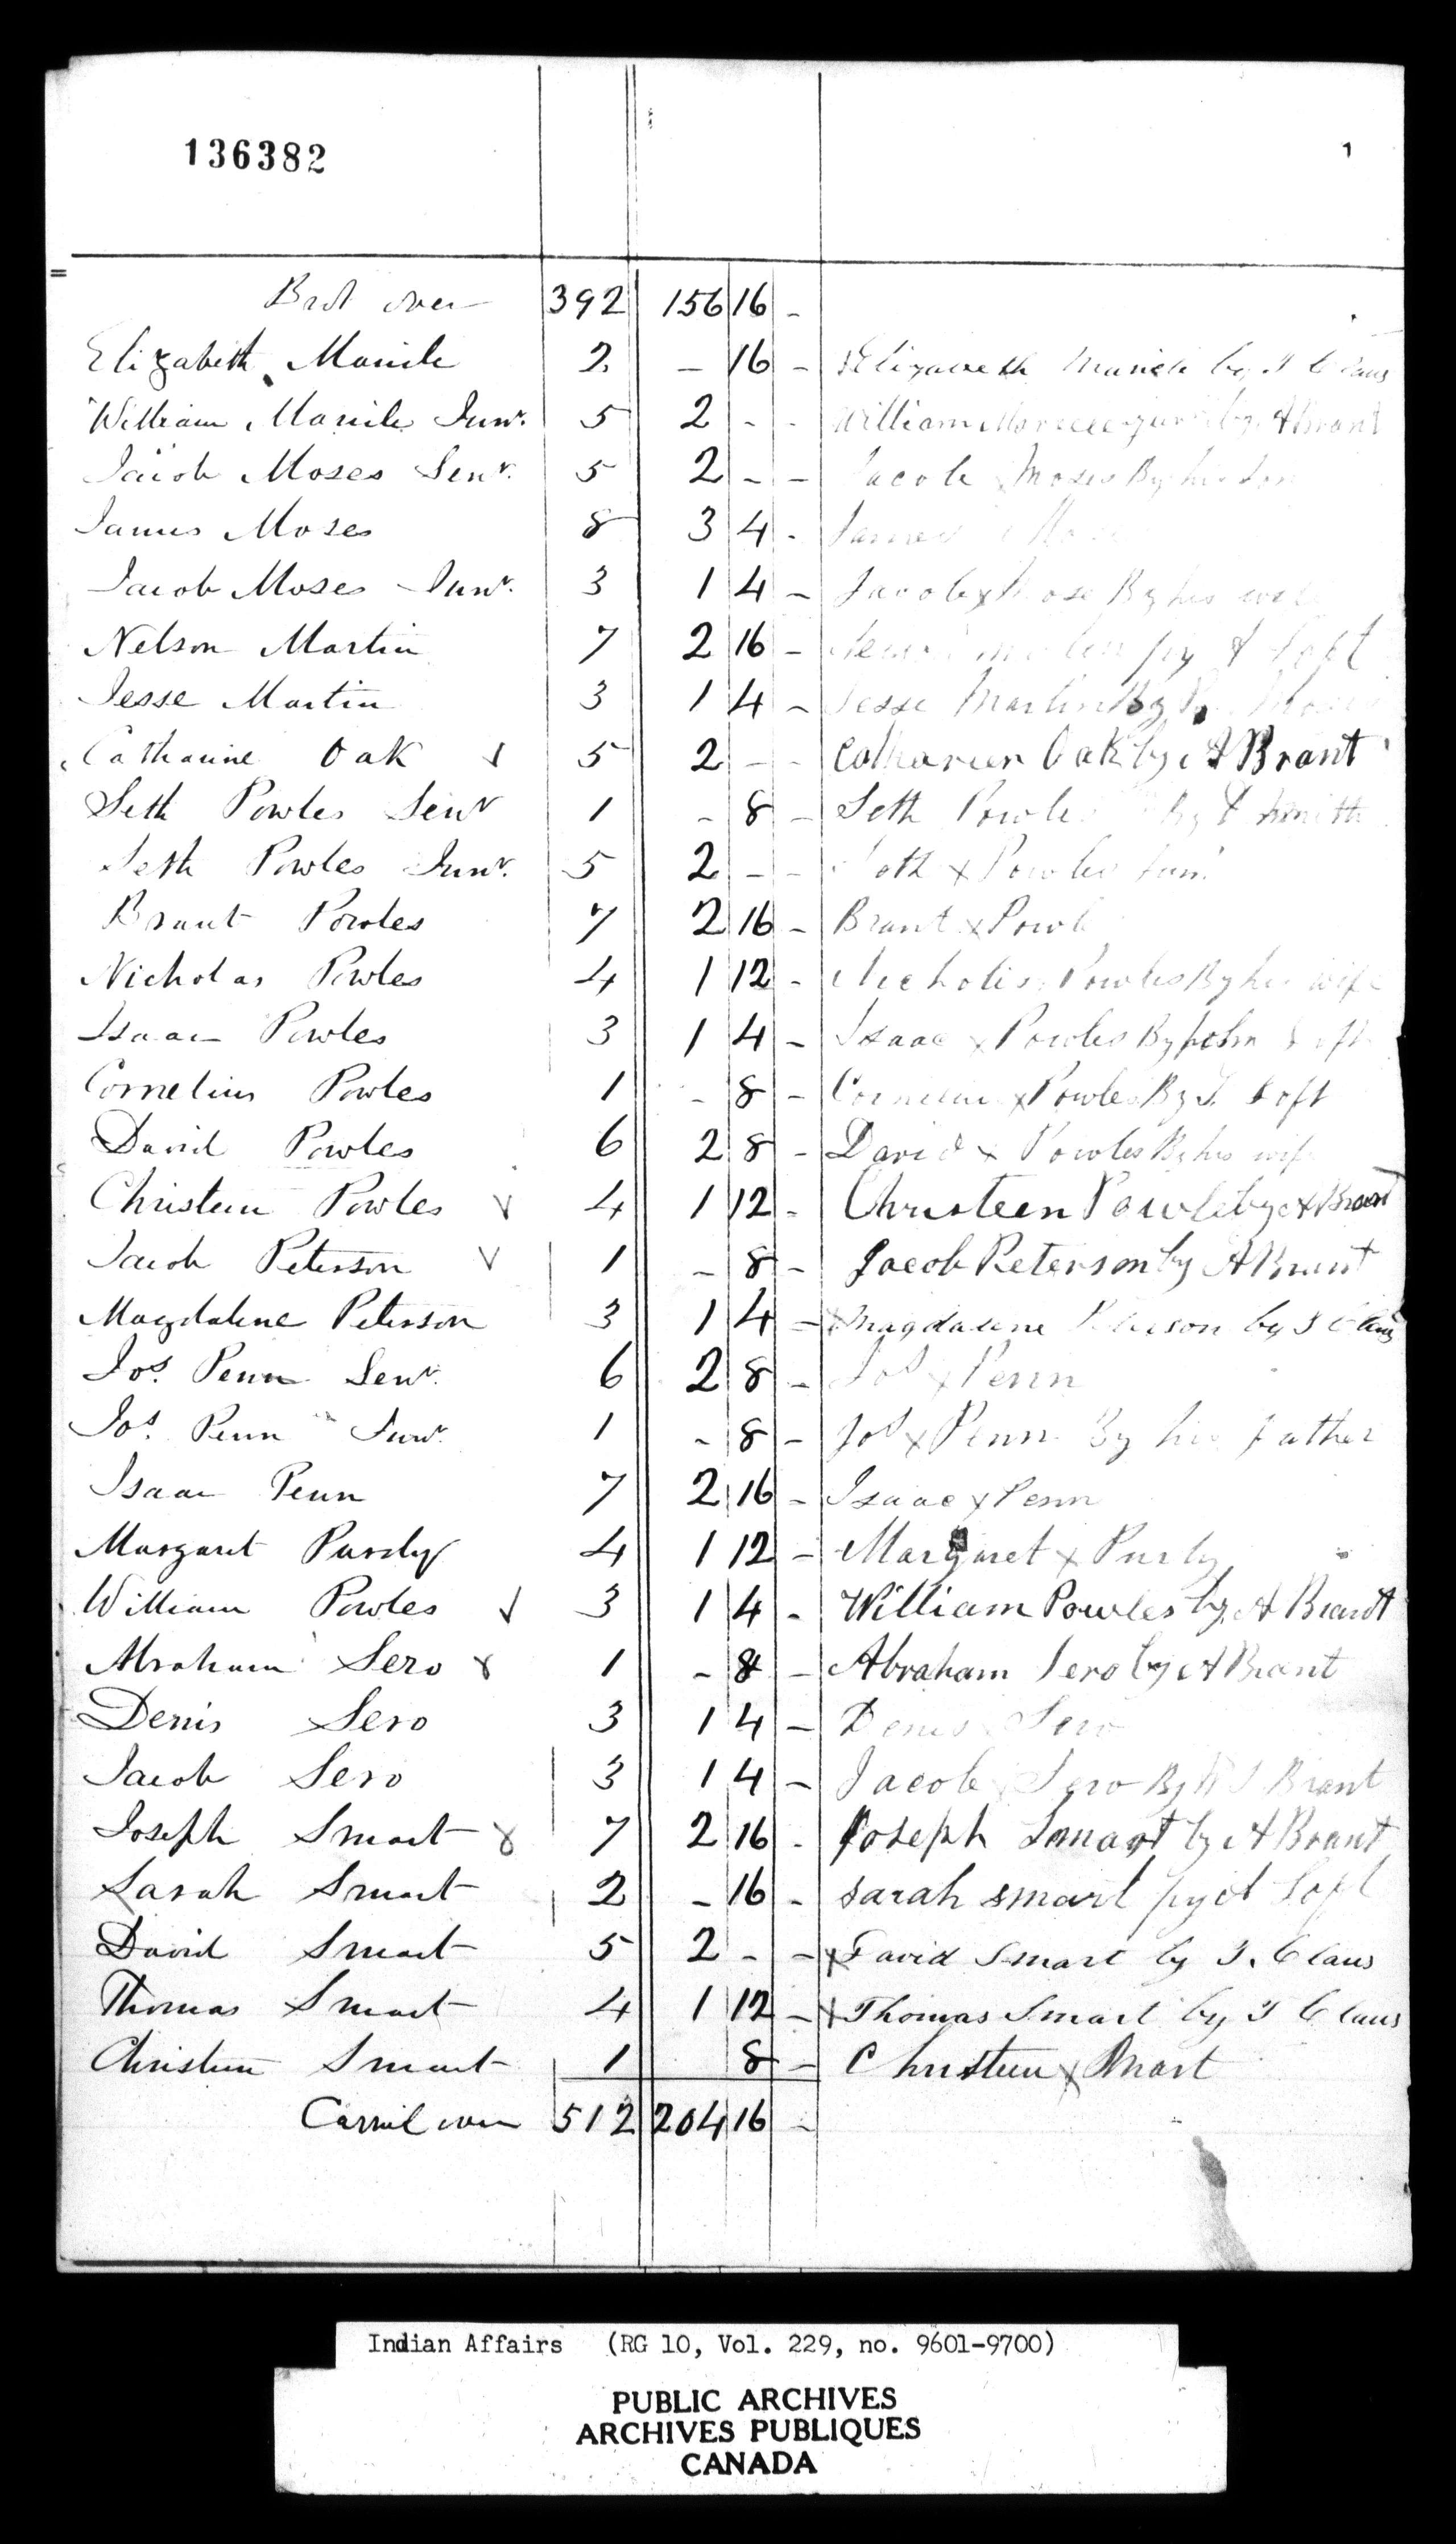 136382
1
Brot over 392 156 16 -
Elizabeth Maricle 2 - 16 - Elizabeth Maricle by J Claus
William Maricle Junr. 5 2 - - William Maricle junr by A Brant
Jacob Moses Senr. 5 2 - - Jacob Moses By his Son
James Moses 8 3 4 - James
Jacob Moses Junr. 3 1 4 - Jacob x Mose By his
Nelson Martin 7 2 16 - Loft
Jesse Martin 3 1 4 - Jesse Martin By
Catharine Oak 5 2 - - Catharien Oak by A Brant
Seth Powles Senr 1 - 8 - Seth Powles By Smith
Seth Powles Junr. 5 2 - - Seth x Powles Jun
Brant Powles 7 2 16 - Brant x Powl
Nicholas Powles 4 1 12 - Nicholis Powles By his wife
Isaac Powles 3 1 4 - Isaac x Powles By John Loft
Cornelius Powles 1 - 8 - Cornelius x Powles By J. Loft
David Powles 6 2 8 - David x Powles By his wife
Christeen Powles v 4 1 12 - Christeen Powle by A Brant
Jacob Peterson v 1 - 8 - Jacob Peterson by A Brant
Magdalene Peterson 3 1 4 - x Magdalene Peterson by J Claus
Jos. Penn Senr. 6 2 8 - Jos x Penn
Jos. Penn Junr. 1 - 8 - Jos x Penn By his father
Isaac Penn 7 2 16 - Isaac x Penn
Margaret Pursly 4 1 12 - Margaret x Pursly
William Powles v 3 1 4 - William Powles by A Brant
Abraham Sero x 1 - 8 - Abraham Sero by A Brant
Denis Sero 3 1 4 - Denis Sero
Jacob Sero 3 1 4 - Jacob x Sero By Brant
Joseph Smart x 7 2 16 - Joseph Smart by A Brant
Sarah Smart 2 - 16 - Sarah smart Loft
David Smart 5 2 - - x David Smart by J. Claus
Thomas Smart 4 1 12 - x Thomas Smart by J Claus
Christeen Smart 1 8 - Christeen x Smart
Carried over 512 204 16 -
Indian Affairs (RG 10, Vol. 229, no. 9601-9700)
PUBLIC ARCHIVES
ARCHIVES PUBLIQUES
CANADA